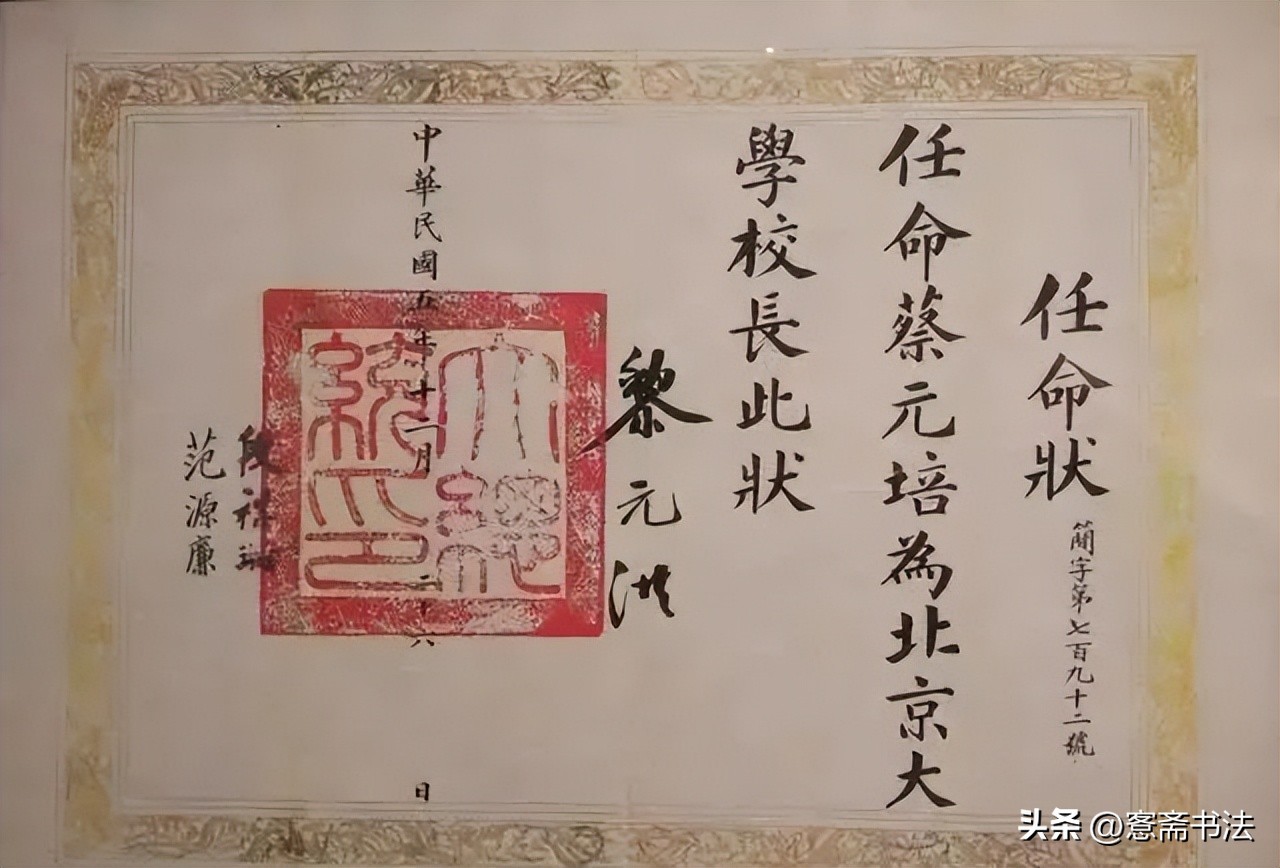 任命狀
簡字第七百九十二號
任命蔡元培為北京大
學校長此狀
黎元洪
大總
統印
中華民國五年十二月二十六日
段祺瑞
范源廉
头条 @窓斋书法